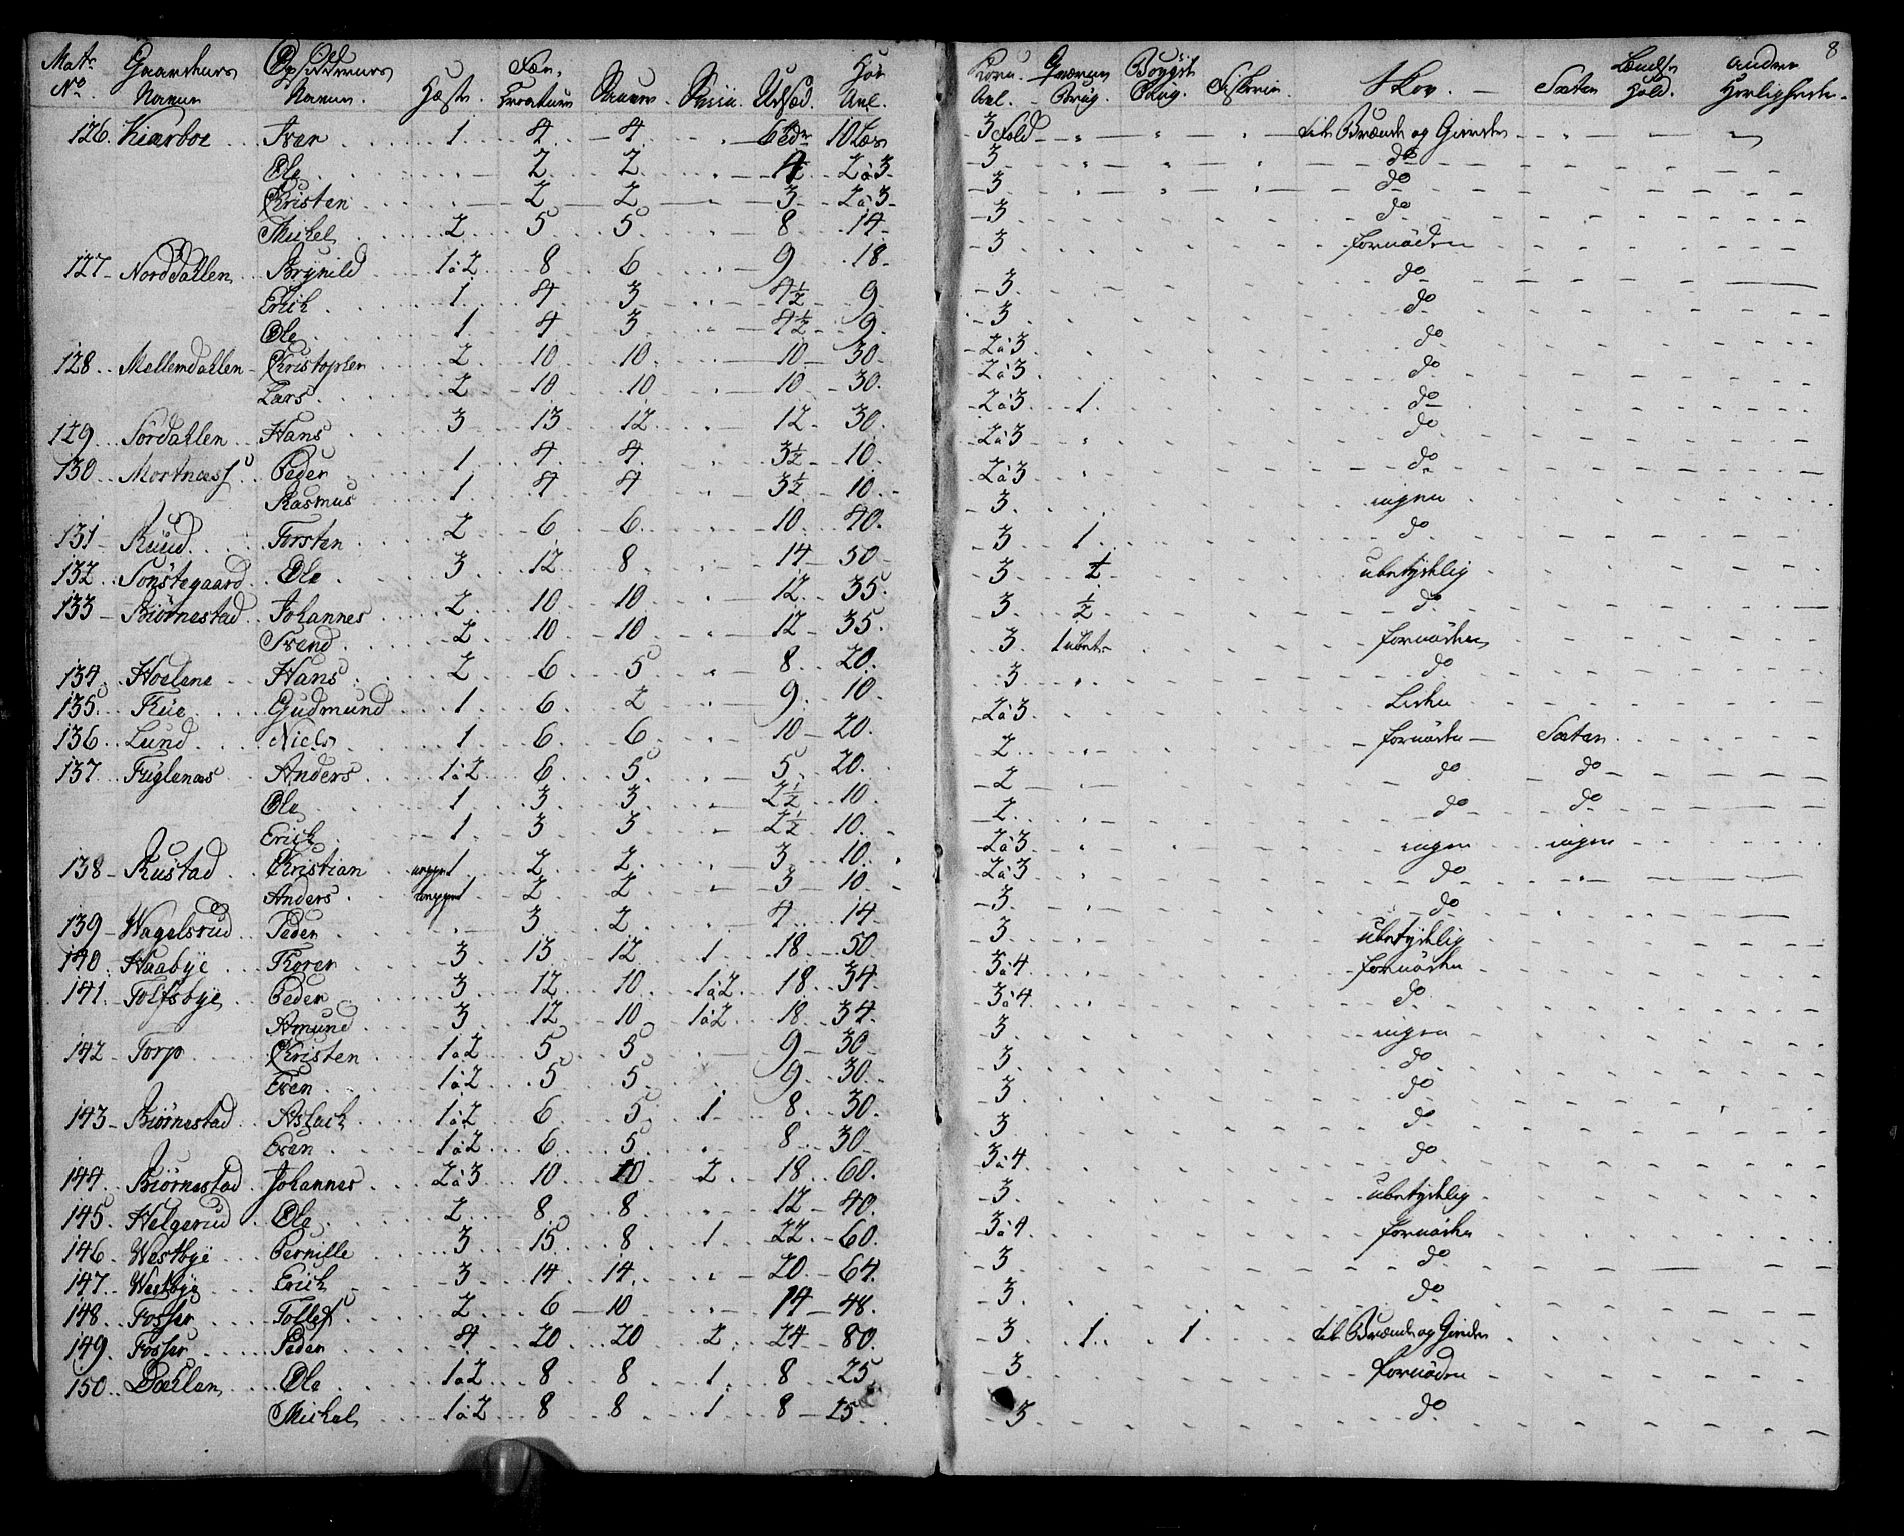 8
Matr No. Gaardenes Navne Opsiddernes Navne. Heste. Fæe, Creature Sauer. Sviin. Udsæd. Høe Avl. Korn Avl. Qværne Brug. Bøygst Saug. Fiskerie. Skov. Sæter Lændsk hold. Andre Herligheder
126. Kiærboe Iver 1 4 4 6 tdr 10 Læs 3 Fold til Brænde og Gierder
Ole 2 2 2 a 3 3 do
Kristen 2 2 3 2 a 3 3 do
Michel 2 5 5 8 14 3 do
127 Norddallen Brynild 1 a 2 8 6 9 18 3 fornøden
Erich 1 4 3 4½ 9 3 do
Ole 1 4 3 4½ 9 3 do
128 Mellemdallen Kristopher 2 10 10 10 30 2 a 3 do
Lars 2 10 10 10 30 2 a 3 do
129 Sørdallen Hans 3 13 12 12 30 2 a 3 1 do
130 Mortnæss Peder 1 4 4 3½ 10 2 a 3 do
Rasmus 1 4 4 3½ 10 2 a 3 do
131 Ruud Torsten 2 6 6 10 40 3 ingen
132 Sønstegaard Ole 3 12 8 14 50 3 1 do
133 Biørnestad Johannes 2 10 10 12 35 3 ½ ubetydelig
Trand 2 10 10 12 35 3 ½ do
134 Hoelene Hans 2 6 5 8 20 3 1 ubet fornøden
135 Gudmund 1 6 2 9 10 3 do
136 Lund Niels 1 6 6 10 20 2 a 3 Lidet
137 Fuglenæs Anders 1 a 2 6 5 5 20 2 fornøden Sæter
Ole 1 3 3 2½ 10 2 do do
Erich 1 3 3 2½ 10 2 do do
138 Rustad Kristian 1 2 2 3 10 2 a 3 ingen ingen
Anders 1 2 2 3 10 2 a 3 do
139 Wagelsrud Peder 3 2 4 14 3 do
140 Haabye Thorer 3 13 12 1 18 50 3 ubetydelig
141 Tolfsbye Peder 3 12 10 1 a 2 18 34 3 a 4 fornøden
Amund 3 12 10 1 a 2 18 34 3 a 4 do
142 Torp Kristen 1 a 2 5 5 9 30 3 ingen
Even 1 a 2 5 5 9 30 3 do
143 Biørnestad Aslach 1 a 2 6 5 1 8 30 3 do
Even 1 a 2 6 5 8 30 3 do
144 Biørnestad Johannes 2 a 3 10 10 2 18 60 3 a 4 do
145 Helgerud Ole 2 8 8 12 40 3 ubetydelig
146 Westbye Pernille 3 15 8 1 22 60 3 a 4 fornøden
147 Westbye Erich 3 14 14 20 64 3 do
148 Fosser Tollef 2 6 10 14 48 3 do
149 Fosser Peder 4 20 20 2 24 80 3 1 1 til Brænde og Gierder
150 Dællen Ole 1 a 2 8 8 1 8 25 3 fornøden
Michel 1 a 2 8 8 1 8 25 3 do